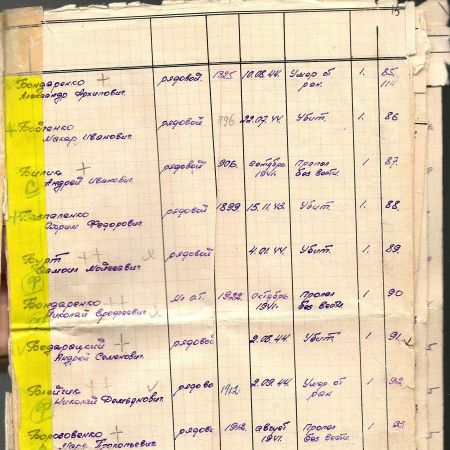 Бондаренко рядовой. 1925 10.08.44. Умер от 1. 85.
Александр Архипович. ран. 114
Бойченко рядовой 896 22.07.44. Убит. 1. 86
Макар Иванович.
Билик рядовой 906. сентябрь Пропал 1 87.
Андрей Иванович. 1941. без вести.
рядовой 1899 15.11.43. Убит. 1 88.
Ефрим Федорович.
Бурт рядовой 4.01.44. Убит. 1. 89.
Самоил Мойсеевич.
Бондаренко 1922. октябрь Пропал 1 90
Николай Ерофеевич 1941. без вести.
Бодарацкий рядовой 2.08.44 Убит. 1 91.
Андрей Семенович.
Блейчик рядово 1912 2.09.44 Умер от 1 92
Николай Демьянович. ран.
рядовс 1912. август Пропал 1 93
Марк Прокопьевич. 1941. без вести.